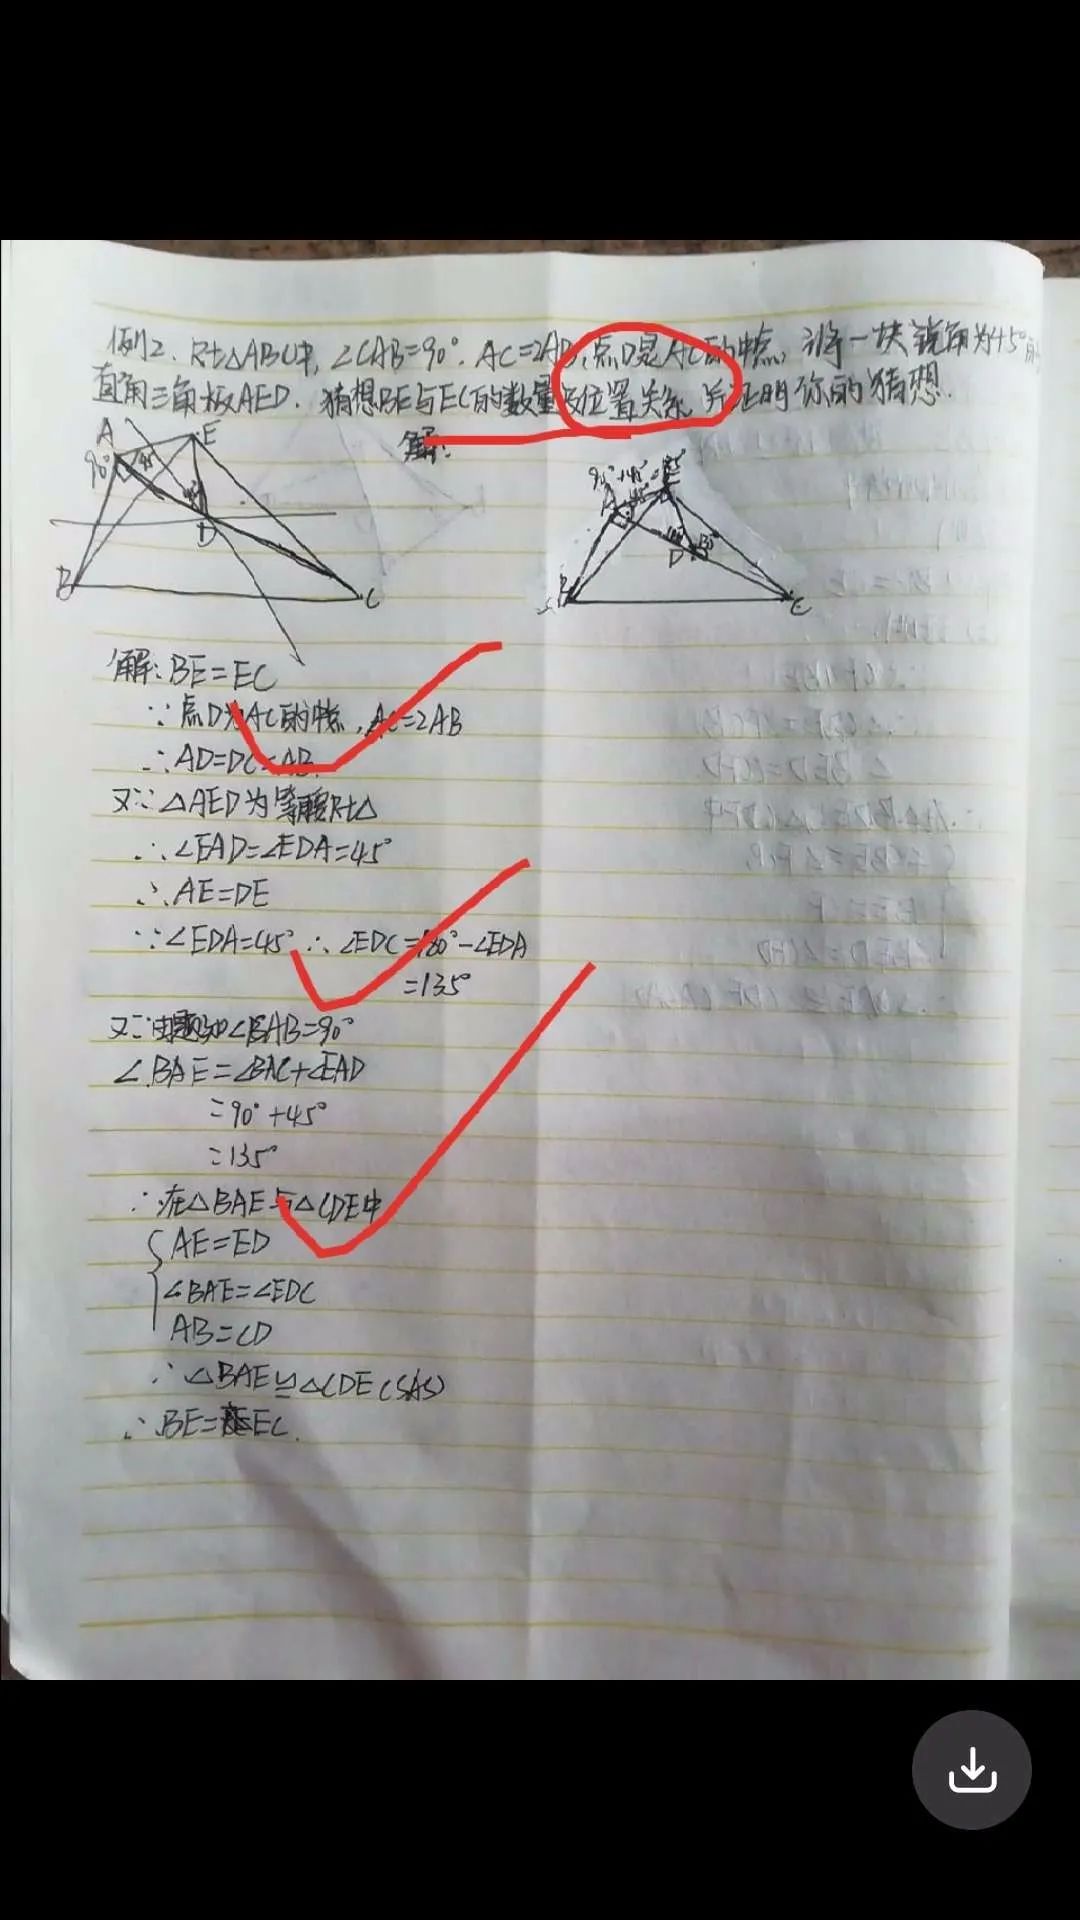 例2. Rt△ABC中, ∠CAB=90°. AC=2AB, 点D是AC的中点, 将一块锐角为45°的
直角三角板AED. 猜想BE与EC的数量及位置关系, 并证明你的猜想.
解:
A
E
90°
45°
45°
D
B
C
90°+45°=135°
E
A
45°
45°
135°
D
B
C
解: BE=EC
∵点D为AC的中点, AC=2AB
∴AD=DC=AB.
又∵△AED为等腰Rt△
∴∠EAD=∠EDA=45°
∴AE=DE
∵∠EDA=45° ∴∠EDC=180°-∠EDA
=135°
又∵由题知∠CAB=90°
∠BAE=∠BAC+∠EAD
=90°+45°
=135°
∴在△BAE与△CDE中
AE=ED
∠BAE=∠EDC
AB=CD
∴△BAE≌△CDE(SAS)
∴BE=EC.